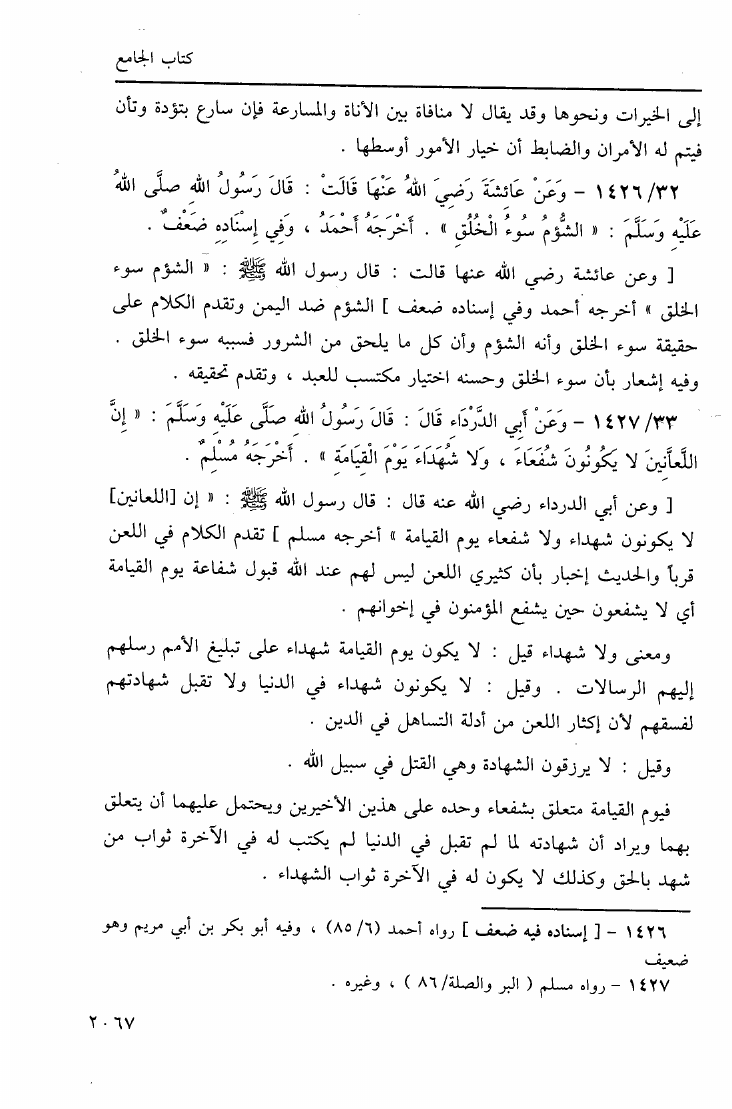 كتاب الجامع
إلى الخيرات ونحوها وقد يقال لا منافاة بين الأناة والمسارعة فإن سارع بتؤدة وتأن
فيتم له الأمران والضابط أن خيار الأمور أوسطها .
١٤٢٦/٣٢ – وَعَنْ عَائشَةَ رَضِيَ اللهُ عَنْهَا قَالَتْ : قَالَ رَسُولُ اللهِ صلَّى اللهُ
عَلَيْهِ وَسَلَّمَ : « الشُّؤمُ سُوءُ الْخُلُقِ » . أَخْرَجَهُ أَحْمَدُ ، وَفِي إِسْنَادِهِ ضَعْفٌ .
[ وعن عائشة رضي الله عنها قالت : قال رسول الله ﷺ : « الشؤم سوء
الخلق » أخرجه أحمد وفي إسناده ضعف ] الشؤم ضد اليمن وتقدم الكلام على
حقيقة سوء الخلق وأنه الشؤم وأن كل ما يلحق من الشرور فسببه سوء الخلق .
وفيه إشعار بأن سوء الخلق وحسنه اختيار مكتسب للعبد ، وتقدم تحقيقه .
١٤٢٧/٣٣ – وَعَنْ أَبِي الدَّرْدَاء قَالَ : قَالَ رَسُولُ اللهِ صَلَّى عَلَيْهِ وَسَلَّمَ : « إِنَّ
اللَّعَّانِينَ لا يَكُونُونَ شُفَعَاءَ ، وَلا شُهَدَاءَ يَوْمَ الْقِيَامَةِ » . أَخْرَجَهُ مُسْلِمٌ .
[ وعن أبي الدرداء رضي الله عنه قال : قال رسول الله ﷺ : « إن [اللعانين]
لا يكونون شهداء ولا شفعاء يوم القيامة » أخرجه مسلم ] تقدم الكلام في اللعن
قرباً والحديث إخبار بأن كثيري اللعن ليس لهم عند الله قبول شفاعة يوم القيامة
أي لا يشفعون حين يشفع المؤمنون في إخوانهم .
ومعنى ولا شهداء قيل : لا يكون يوم القيامة شهداء على تبليغ الأمم رسلهم
إليهم الرسالات . وقيل : لا يكونون شهداء في الدنيا ولا تقبل شهادتهم
لفسقهم لأن إكثار اللعن من أدلة التساهل في الدين .
وقيل : لا يرزقون الشهادة وهي القتل في سبيل الله .
فيوم القيامة متعلق بشفعاء وحده على هذين الأخيرين ويحتمل عليهما أن يتعلق
بهما ويراد أن شهادته لما لم تقبل في الدنيا لم يكتب له في الآخرة ثواب من
شهد بالحق وكذلك لا يكون له في الآخرة ثواب الشهداء .
١٤٢٦ – [ إسناده فيه ضعف ] رواه أحمد (٨٥/٦) ، وفيه أبو بكر بن أبي مريم وهو
ضعيف
١٤٢٧ – رواه مسلم ( البر والصلة/٨٦ ) ، وغيره .
٢٠٦٧